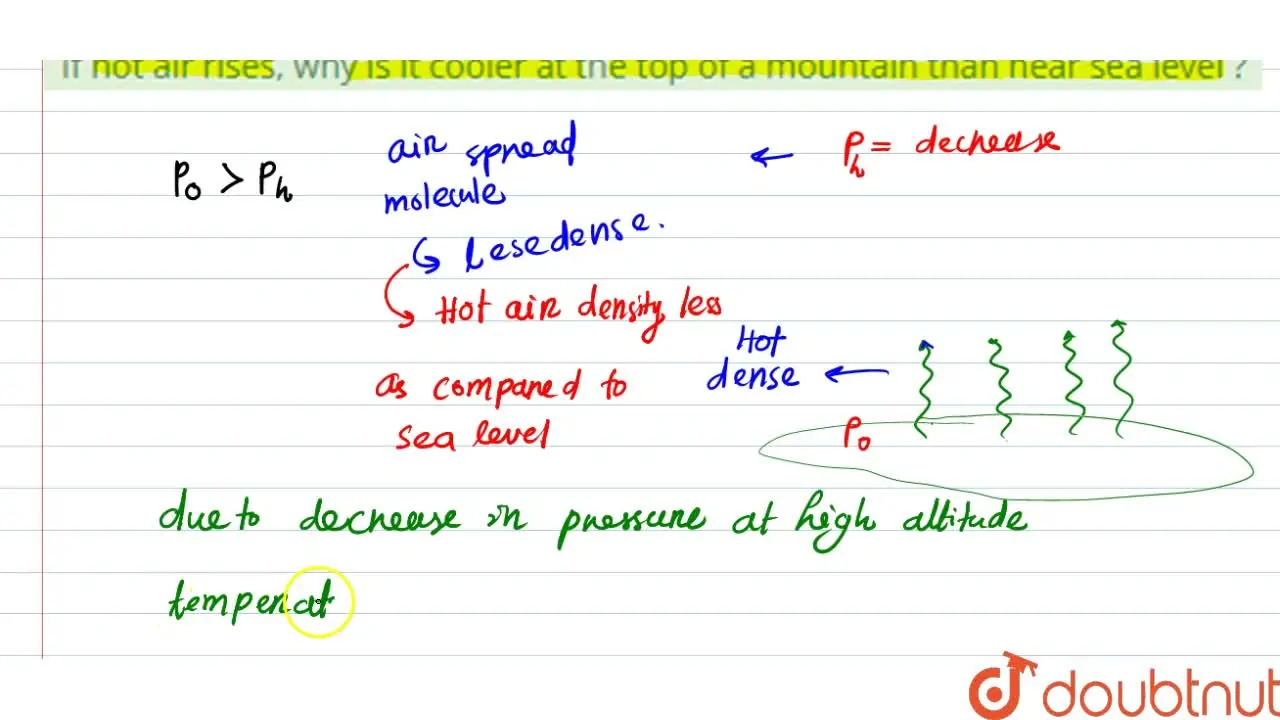 If hot air rises, why is it cooler at the top of a mountain than near sea level ?
P0 > Ph
air spread
molecule
↳ Lesedense.
↳ Hot air density less
as compared to
sea level
← Ph = decrease
Hot
dense ←
P0
due to decrease in pressure at high altitude
temperat
doubtnut